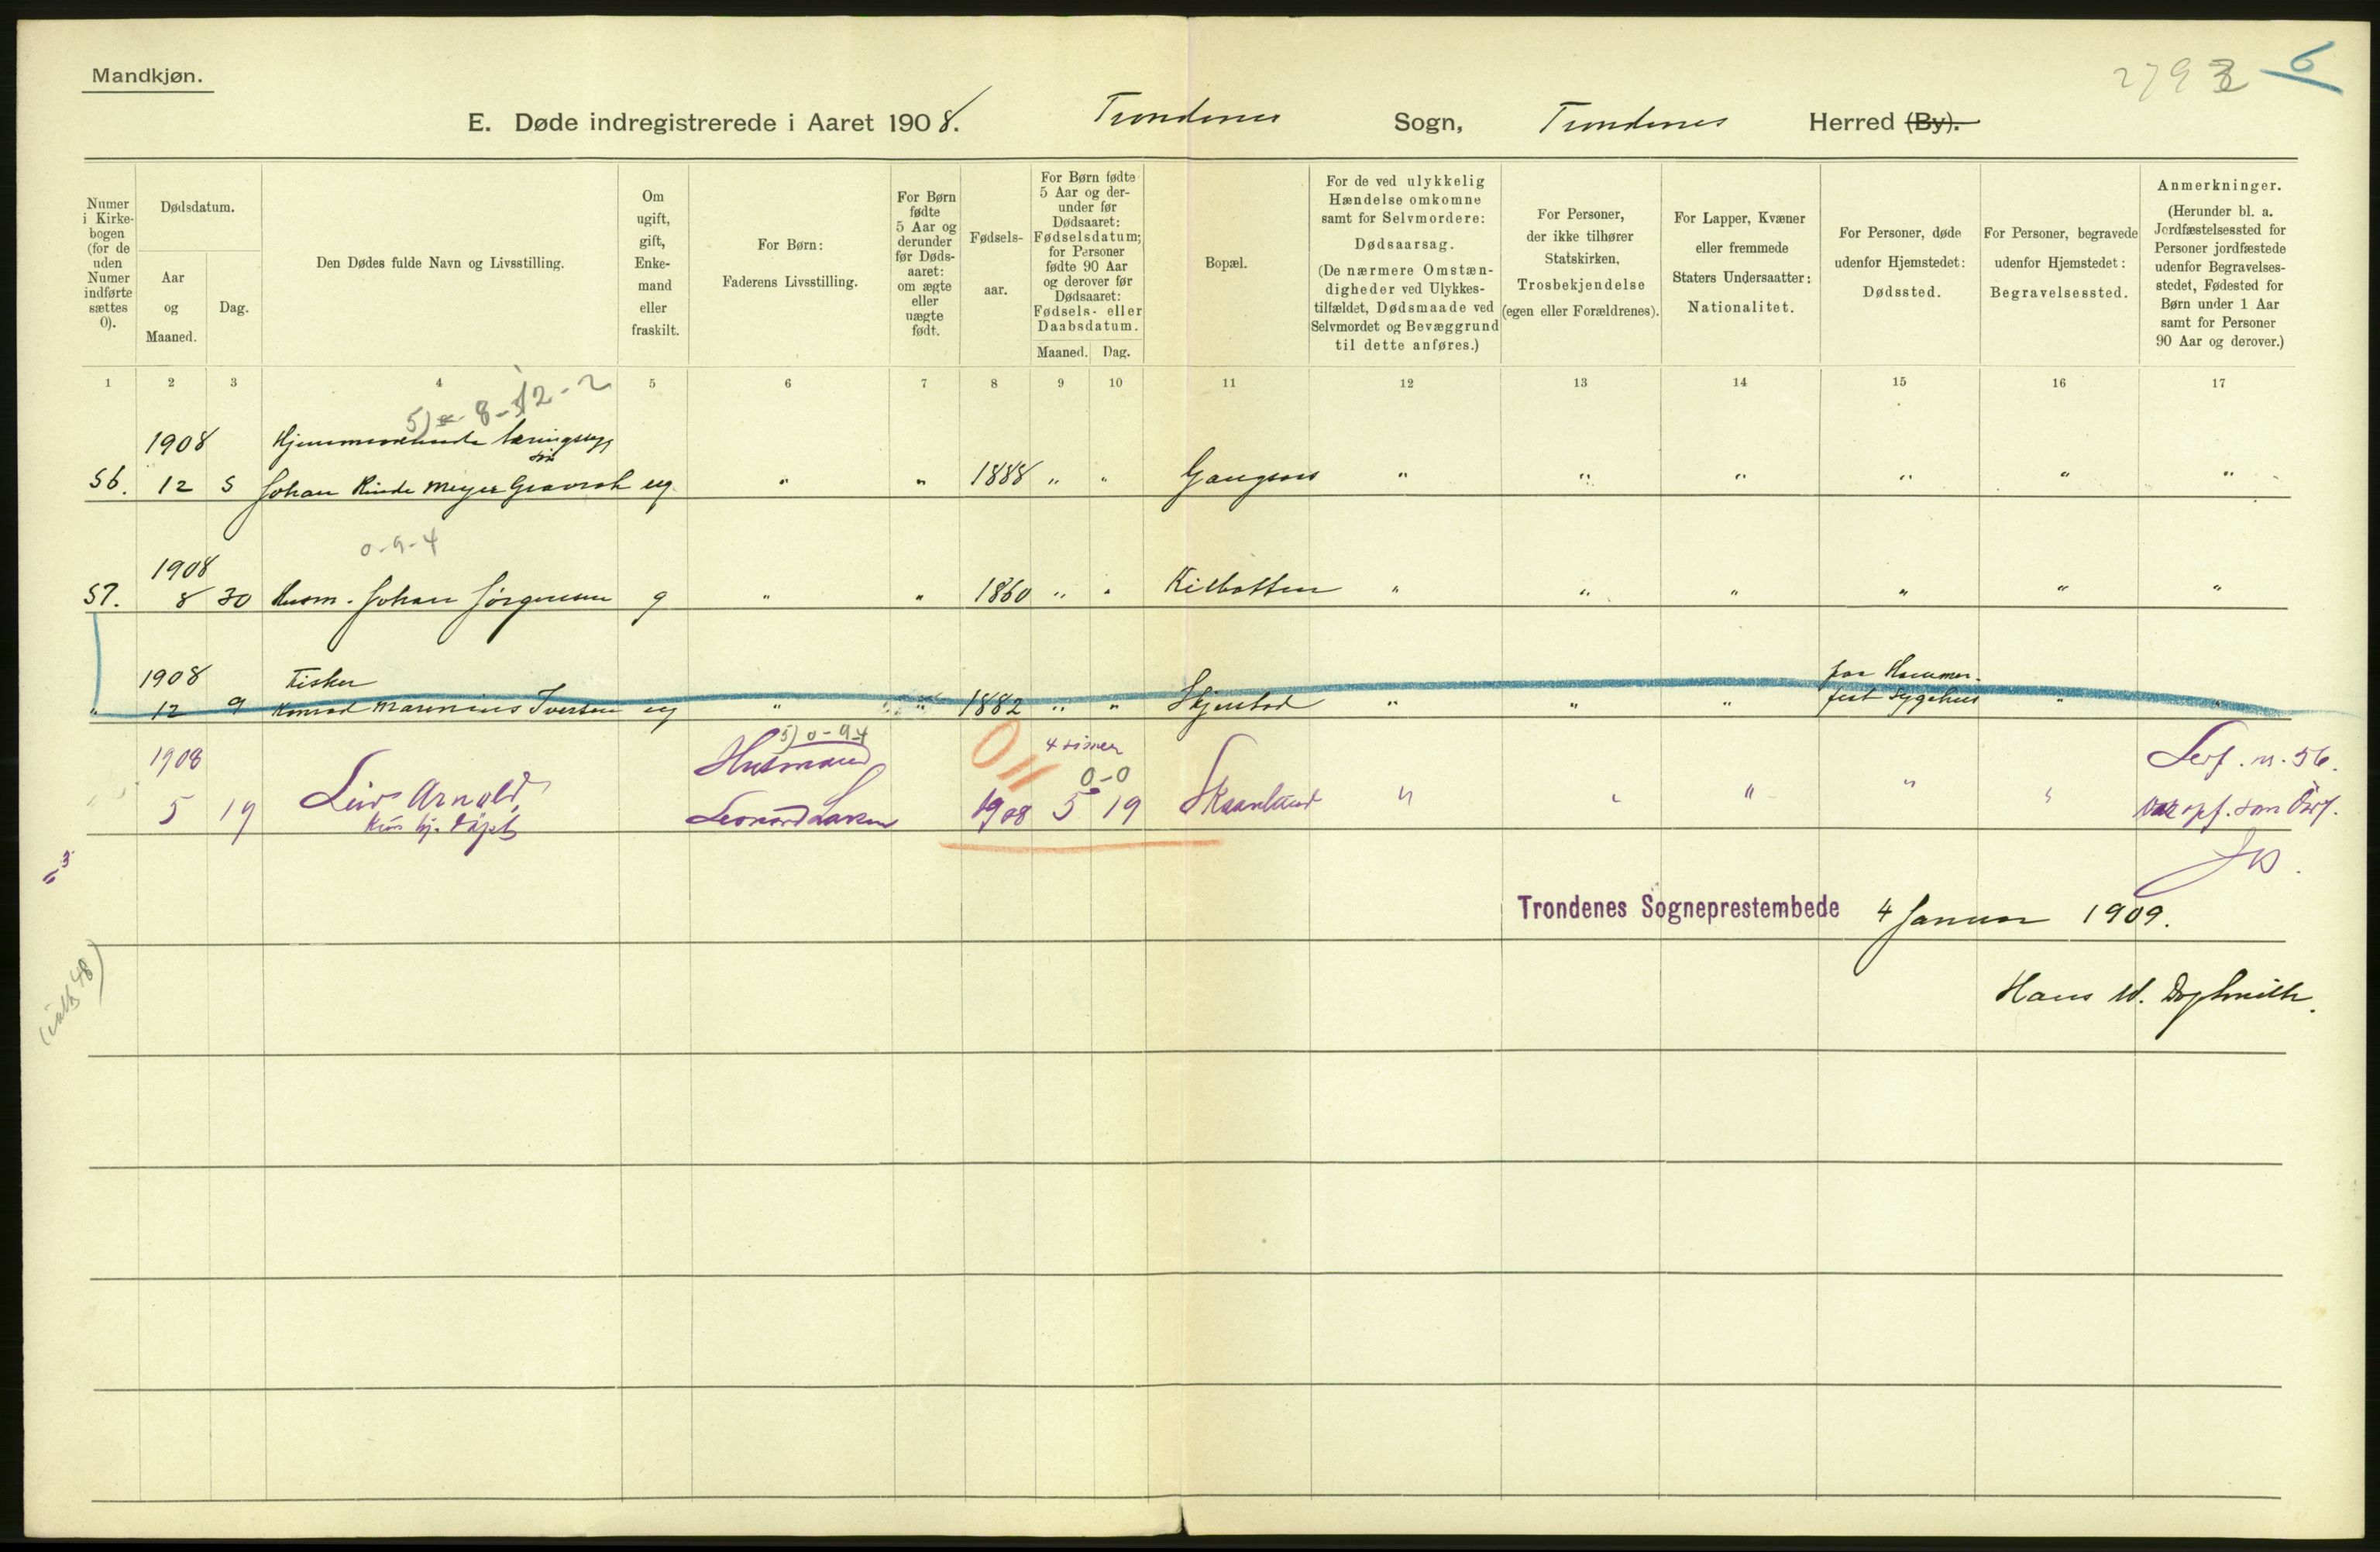 Mandkjøn.
2793 6
E. Døde indregistrerede i Aaret 1908. Trondenes Sogn, Trondenes Herred (By).
Numer i Kirkebogen (for de uden Numer indførte sættes 0).
Dødsdatum.
Aar og Maaned.
Dag.
Den Dødes fulde Navn og Livsstilling.
Om ugift, gift, Enkemand eller fraskilt.
For Børn:
Faderens Livsstilling.
For Børn fødte 5 Aar og derunder før Dødsaaret: om ægte eller uægte født.
Fødselsaar.
For Børn fødte 5 Aar og derunder før Dødsaaret: Fødselsdatum; for Personer fødte 90 Aar og derover før Dødsaaret: Fødsels- eller Daabsdatum.
Maaned. Dag.
Bopæl.
For de ved ulykkelig Hændelse omkomne samt for Selvmordere:
Dødsaarsag.
(De nærmere Omstændigheder ved Ulykkestilfældet, Dødsmaade ved Selvmordet og Bevæggrund til dette anføres.)
For Personer, der ikke tilhører Statskirken, Trosbekjendelse (egen eller Forældrenes).
For Lapper, Kvæner eller fremmede Staters Undersaatter: Nationalitet.
For Personer, døde udenfor Hjemstedet: Dødssted.
For Personer, begravede udenfor Hjemstedet: Begravelsessted.
Anmerkninger.
(Herunder bl. a. Jordfæstelsessted for Personer jordfæstede udenfor Begravelsesstedet, Fødested for Børn under 1 Aar samt for Personer 90 Aar og derover.)
1 2 3 4 5 6 7 8 9 10 11 12 13 14 15 16 17
8-12-2
1908 Hjemmeværende
56. 12 5 Johan Rinde Meyer Gravrok ug " " 1888 " " Gangsaas " " " " " "
0-9-4
1908
57. 8 30 Husm. Johan Jörgensen g " " 1860 " " Kilbotten " " " " " "
1908 Fisker paa Hammer-
" 12 9 Konrad Marenius Iversen ug " " 1882 " " Skjenstad " " " fest Sygehus " "
5) 0-9-4
1908 Husmand 4 timer
0-0
5 19 Leiv Arnold, Leonard Larsen 1908 5 19 Skaanland " " " " "
hj. døpt
Trondenes Sogneprestembede 4 Januar 1909.
(ialt 48)